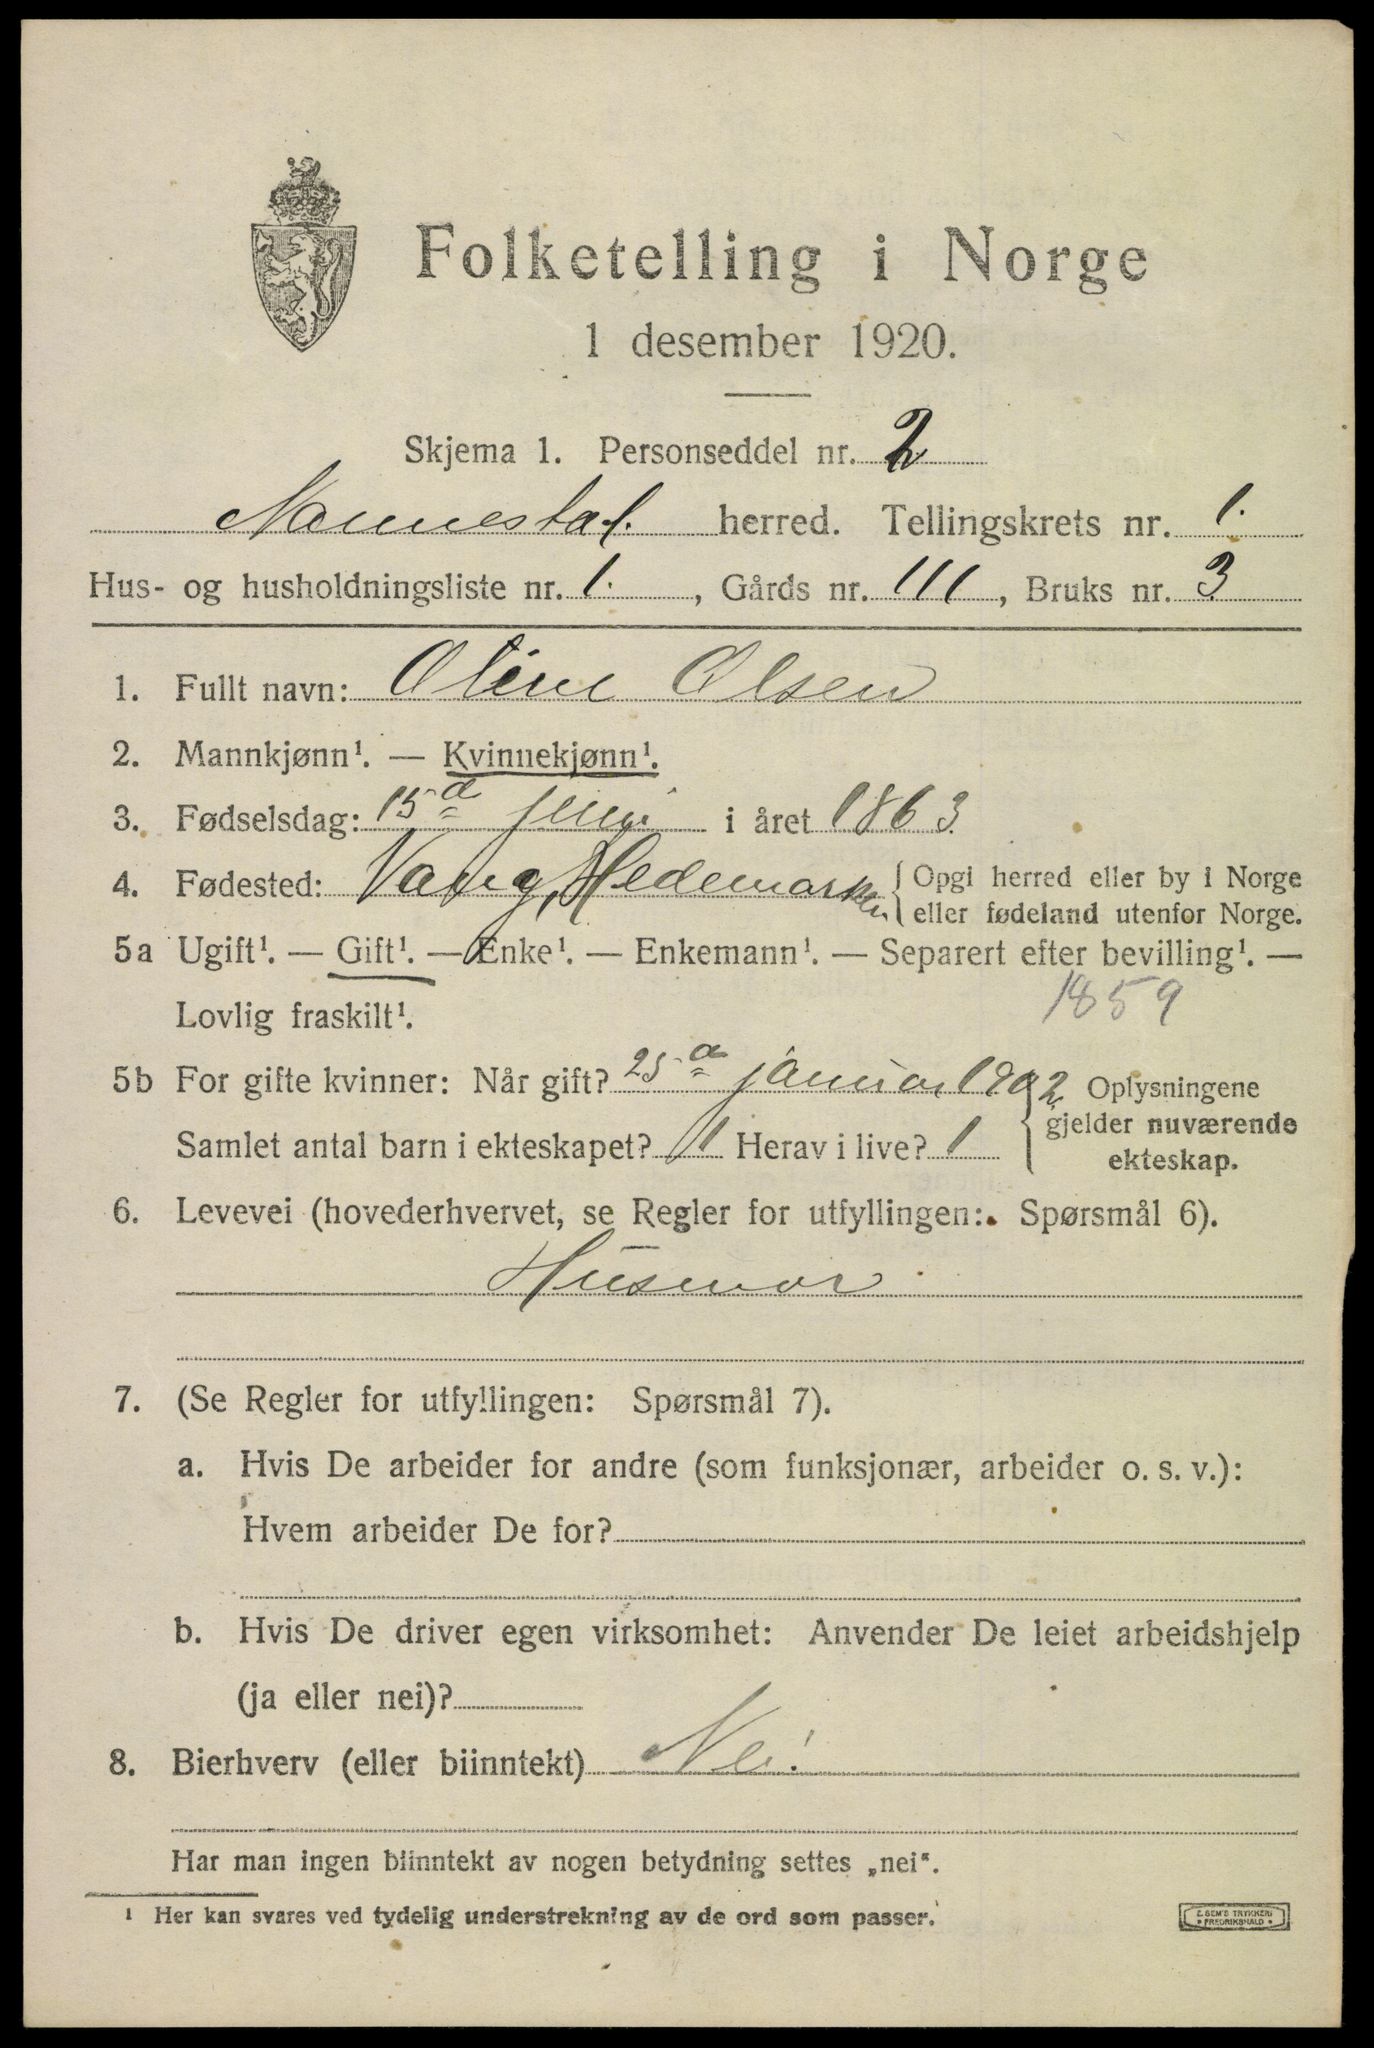 Folketelling i Norge
1 desember 1920.
Skjema 1. Personseddel nr. 2
Nannestad. herred. Tellingskrets nr. 1.
Hus- og husholdningsliste nr. 1. , Gårds nr. 111, Bruks nr. 3
1. Fullt navn: Oline Olsen
2. Mannkjønn¹. — Kvinnekjønn¹.
3. Fødselsdag: 15de i året 1863.
4. Fødested: Vang, Hedemarken { Opgi herred eller by i Norge
eller fødeland utenfor Norge.
5a Ugift¹. — Gift¹. — Enke¹. — Enkemann¹. — Separert efter bevilling¹. —
Lovlig fraskilt¹.
1859
5b For gifte kvinner: Når gift? 25de januar 1902 { Oplysningene
gjelder nuværende
Samlet antal barn i ekteskapet? 1 Herav i live? 1
ekteskap.
6. Levevei (hovederhvervet, se Regler for utfyllingen: Spørsmål 6).
Husmor
7. (Se Regler for utfyllingen: Spørsmål 7).
a. Hvis De arbeider for andre (som funksjonær, arbeider o. s. v.):
Hvem arbeider De for?
b. Hvis De driver egen virksomhet: Anvender De leiet arbeidshjelp
(ja eller nei)?
8. Bierhverv (eller biinntekt) Nei.
Har man ingen biinntekt av nogen betydning settes „nei“.
¹ Her kan svares ved tydelig understrekning av de ord som passer.
E. SEM'S TRYKKERI
• FREDRIKSHALD •